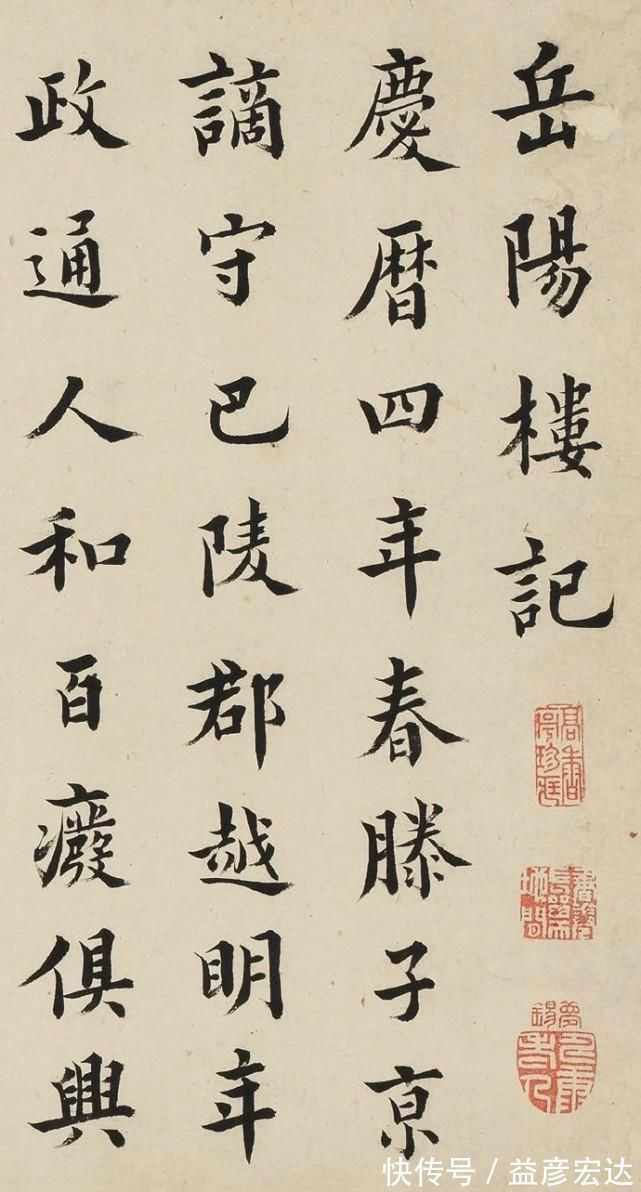 岳陽樓記
慶曆四年春滕子京
謫守巴陵郡越明年
政通人和百癈俱興
快传号／益彦宏达